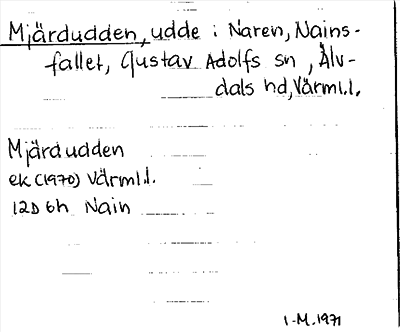 Mjärdudden, udde i Naren, Nains-
fallet, Gustav Adolfs sn, Älv-
dals hd, Värml.l.
Mjärdudden
ek (1970) Värml.l.
12D 6h Nain
I-M. 1971